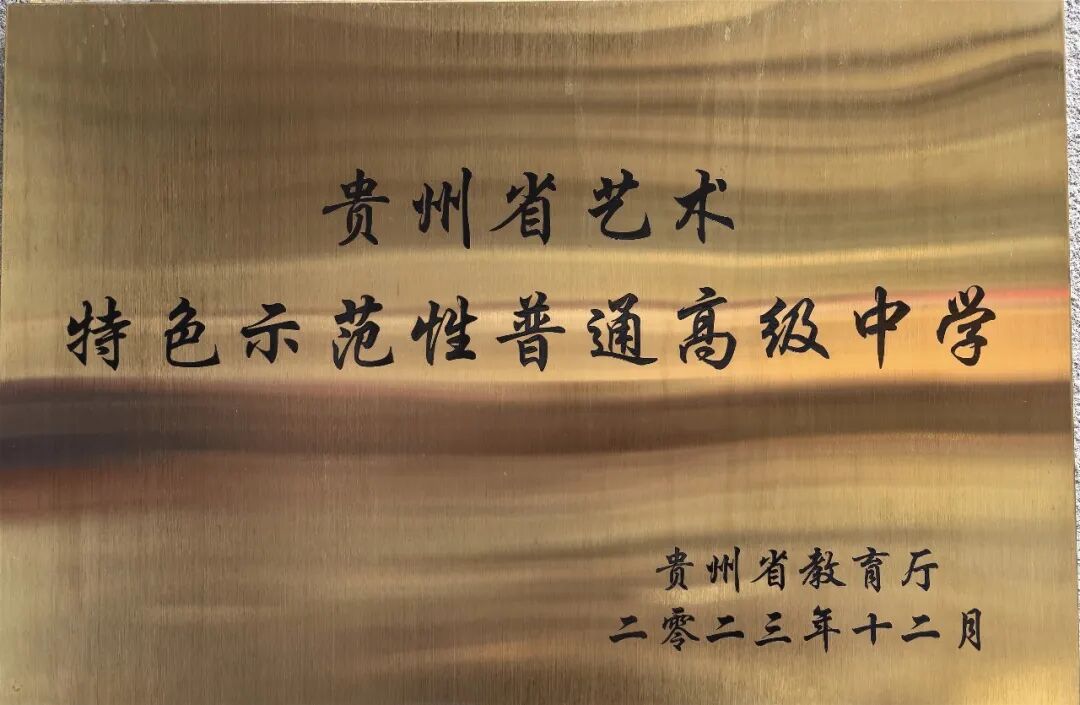 贵州省艺术
特色示范性普通高级中学
贵州省教育厅
二零二三年十二月